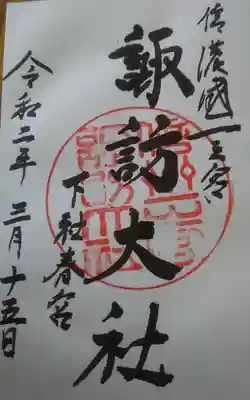 信濃國一之宮
諏訪大社
下社春宮
令和二年 三月十五日